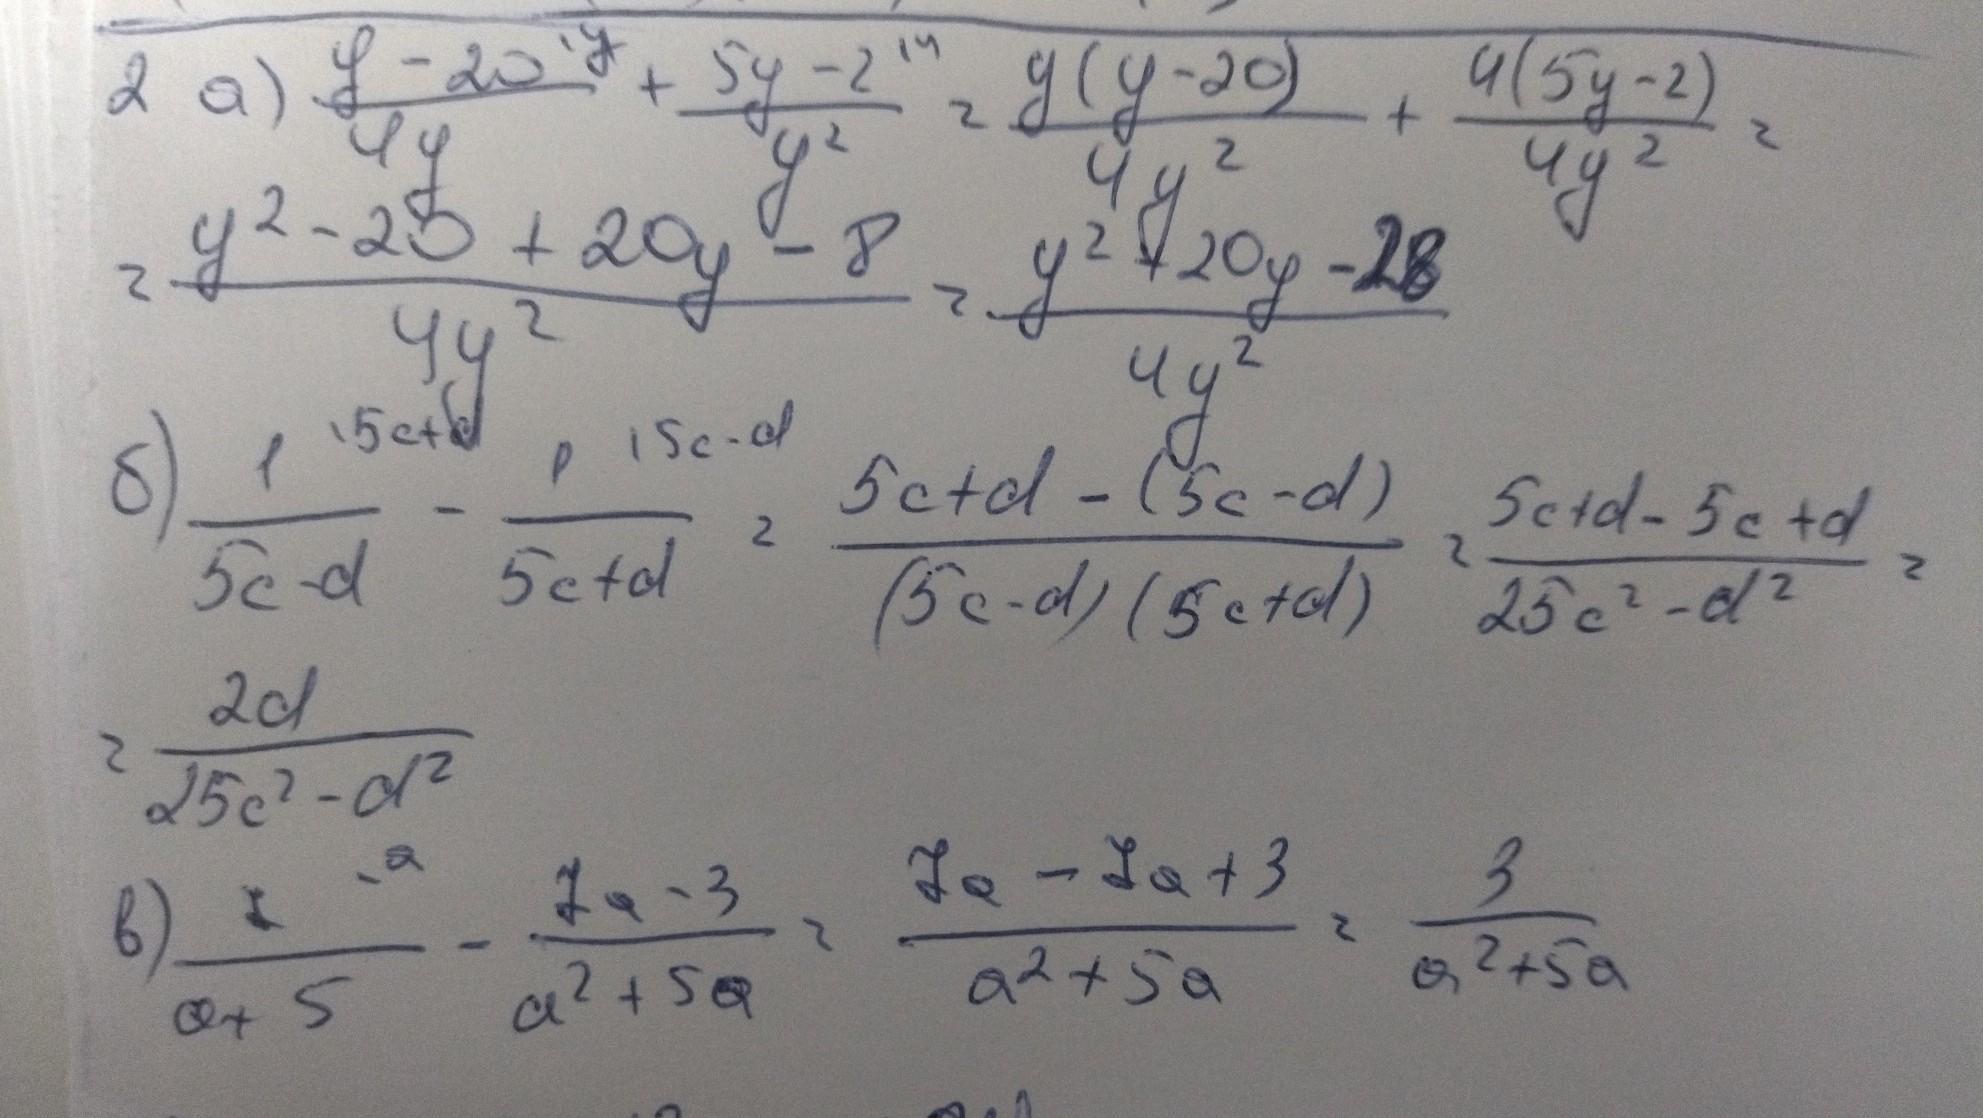 2 а) (y - 20)/(4y) + (5y - 2)/(y²) = (y(y - 20))/(4y²) + (4(5y - 2))/(4y²) =
= (y² - 20 + 20y - 8)/(4y²) = (y² + 20y - 28)/(4y²)
б) 1/(5c - d) - 1/(5c + d) = (5c + d - (5c - d))/((5c - d)(5c + d)) = (5c + d - 5c + d)/(25c² - d²) =
= 2d/(25c² - d²)
в) 7/(a + 5) - (7a - 3)/(a² + 5a) = (7a - 7a + 3)/(a² + 5a) = 3/(a² + 5a)